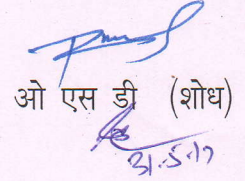 ओ एस डी (शोध)
31.5.17